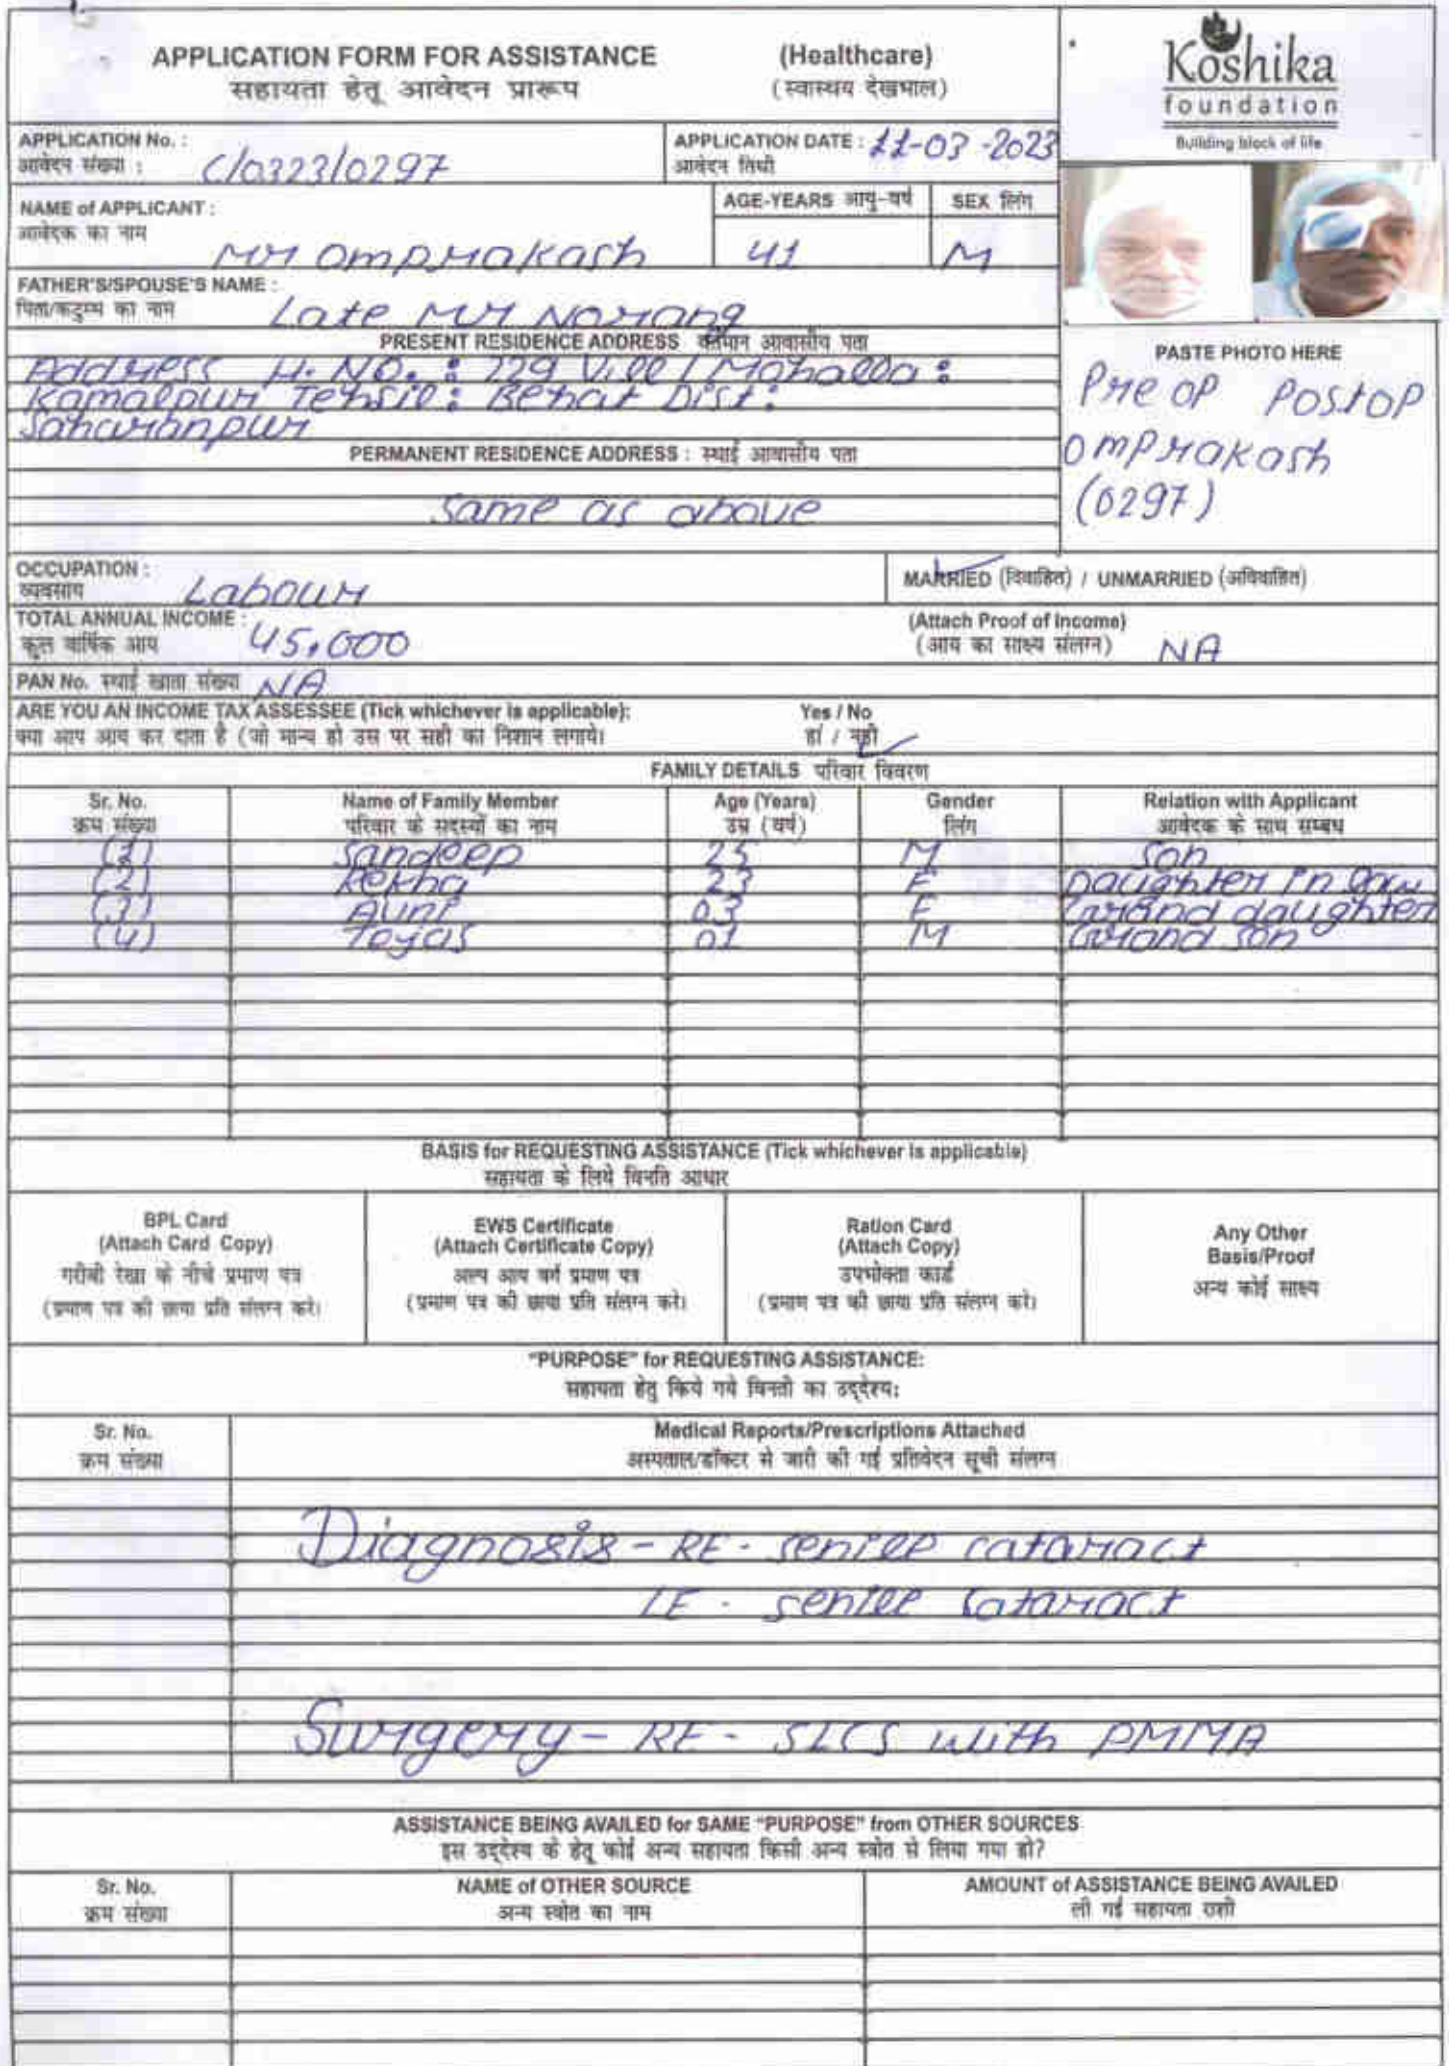 APPLICATION FORM FOR ASSISTANCE (Healthcare)
सहायता हेतू आवेदन प्रारूप (स्वास्थय देखभाल)
Koshika
foundation
Building block of life
APPLICATION No. : C/0323/0297
आवेदन संख्या :
APPLICATION DATE : 11-03-2023
आवेदन तिथी
NAME of APPLICANT :
आवेदक का नाम
Mr Omprakash
AGE-YEARS आयु-वर्ष
41
SEX लिंग
M
FATHER'S/SPOUSE'S NAME :
पिता/कटुम्ब का नाम
Late Mr Narang
PRESENT RESIDENCE ADDRESS वर्तमान आवासीय पता
Address H. NO. : 229 Vill / Mohalla :
Kamalpur Tehsil : Behat Dist :
Saharanpur
PERMANENT RESIDENCE ADDRESS : स्थाई आवासीय पता
Same as above
PASTE PHOTO HERE
Pre OP Post OP
Omprakash
(0297)
OCCUPATION :
व्यवसाय
Labour
MARRIED (विवाहित) / UNMARRIED (अविवाहित)
TOTAL ANNUAL INCOME :
कुल वार्षिक आय
45,000
(Attach Proof of Income)
(आय का साक्ष्य संलग्न) NA
PAN No. स्थाई खाता संख्या NA
ARE YOU AN INCOME TAX ASSESSEE (Tick whichever is applicable): Yes / No
क्या आप आय कर दाता है (जो मान्य हो उस पर सही का निशान लगाये। हां / नही
FAMILY DETAILS परिवार विवरण
Sr. No. Name of Family Member Age (Years) Gender Relation with Applicant
क्रम संख्या परिवार के सदस्यों का नाम उम्र (वर्ष) लिंग आवेदक के साथ सम्बध
(1) Sandeep 25 M Son
(2) Rekha 23 F Daughter in law
(3) 03 F Grand daughter
(4) 01 M Grand son
BASIS for REQUESTING ASSISTANCE (Tick whichever is applicable)
सहायता के लिये विनति आधार
BPL Card
(Attach Card Copy)
गरीबी रेखा के नीचे प्रमाण पत्र
(प्रमाण पत्र की छाया प्रति संलग्न करे।
EWS Certificate
(Attach Certificate Copy)
अल्प आय वर्ग प्रमाण पत्र
(प्रमाण पत्र की छाया प्रति संलग्न करे।
Ration Card
(Attach Copy)
उपभोक्ता कार्ड
(प्रमाण पत्र की छाया प्रति संलग्न करे।
Any Other
Basis/Proof
अन्य कोई साक्ष्य
"PURPOSE" for REQUESTING ASSISTANCE:
सहायता हेतु किये गये विनती का उद्देश्य:
Sr. No. Medical Reports/Prescriptions Attached
क्रम संख्या अस्पताल/डॉक्टर से जारी की गई प्रतिवेदन सूची संलग्न
Diagnosis - RE - senile cataract
LE - senile cataract
Surgery - RE - SICS with PMMA
ASSISTANCE BEING AVAILED for SAME "PURPOSE" from OTHER SOURCES
इस उद्देश्य के हेतू कोई अन्य सहायता किसी अन्य स्त्रोत से लिया गया हो?
Sr. No. NAME of OTHER SOURCE AMOUNT of ASSISTANCE BEING AVAILED
क्रम संख्या अन्य स्त्रोत का नाम ली गई सहायता राशी